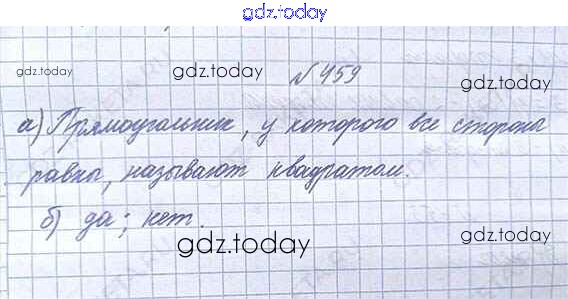 gdz.today
gdz.today gdz.today № 459 gdz.today
а) Прямоугольник, у которого все стороны
равны, называют квадратом.
б) да; нет.
gdz.today gdz.today